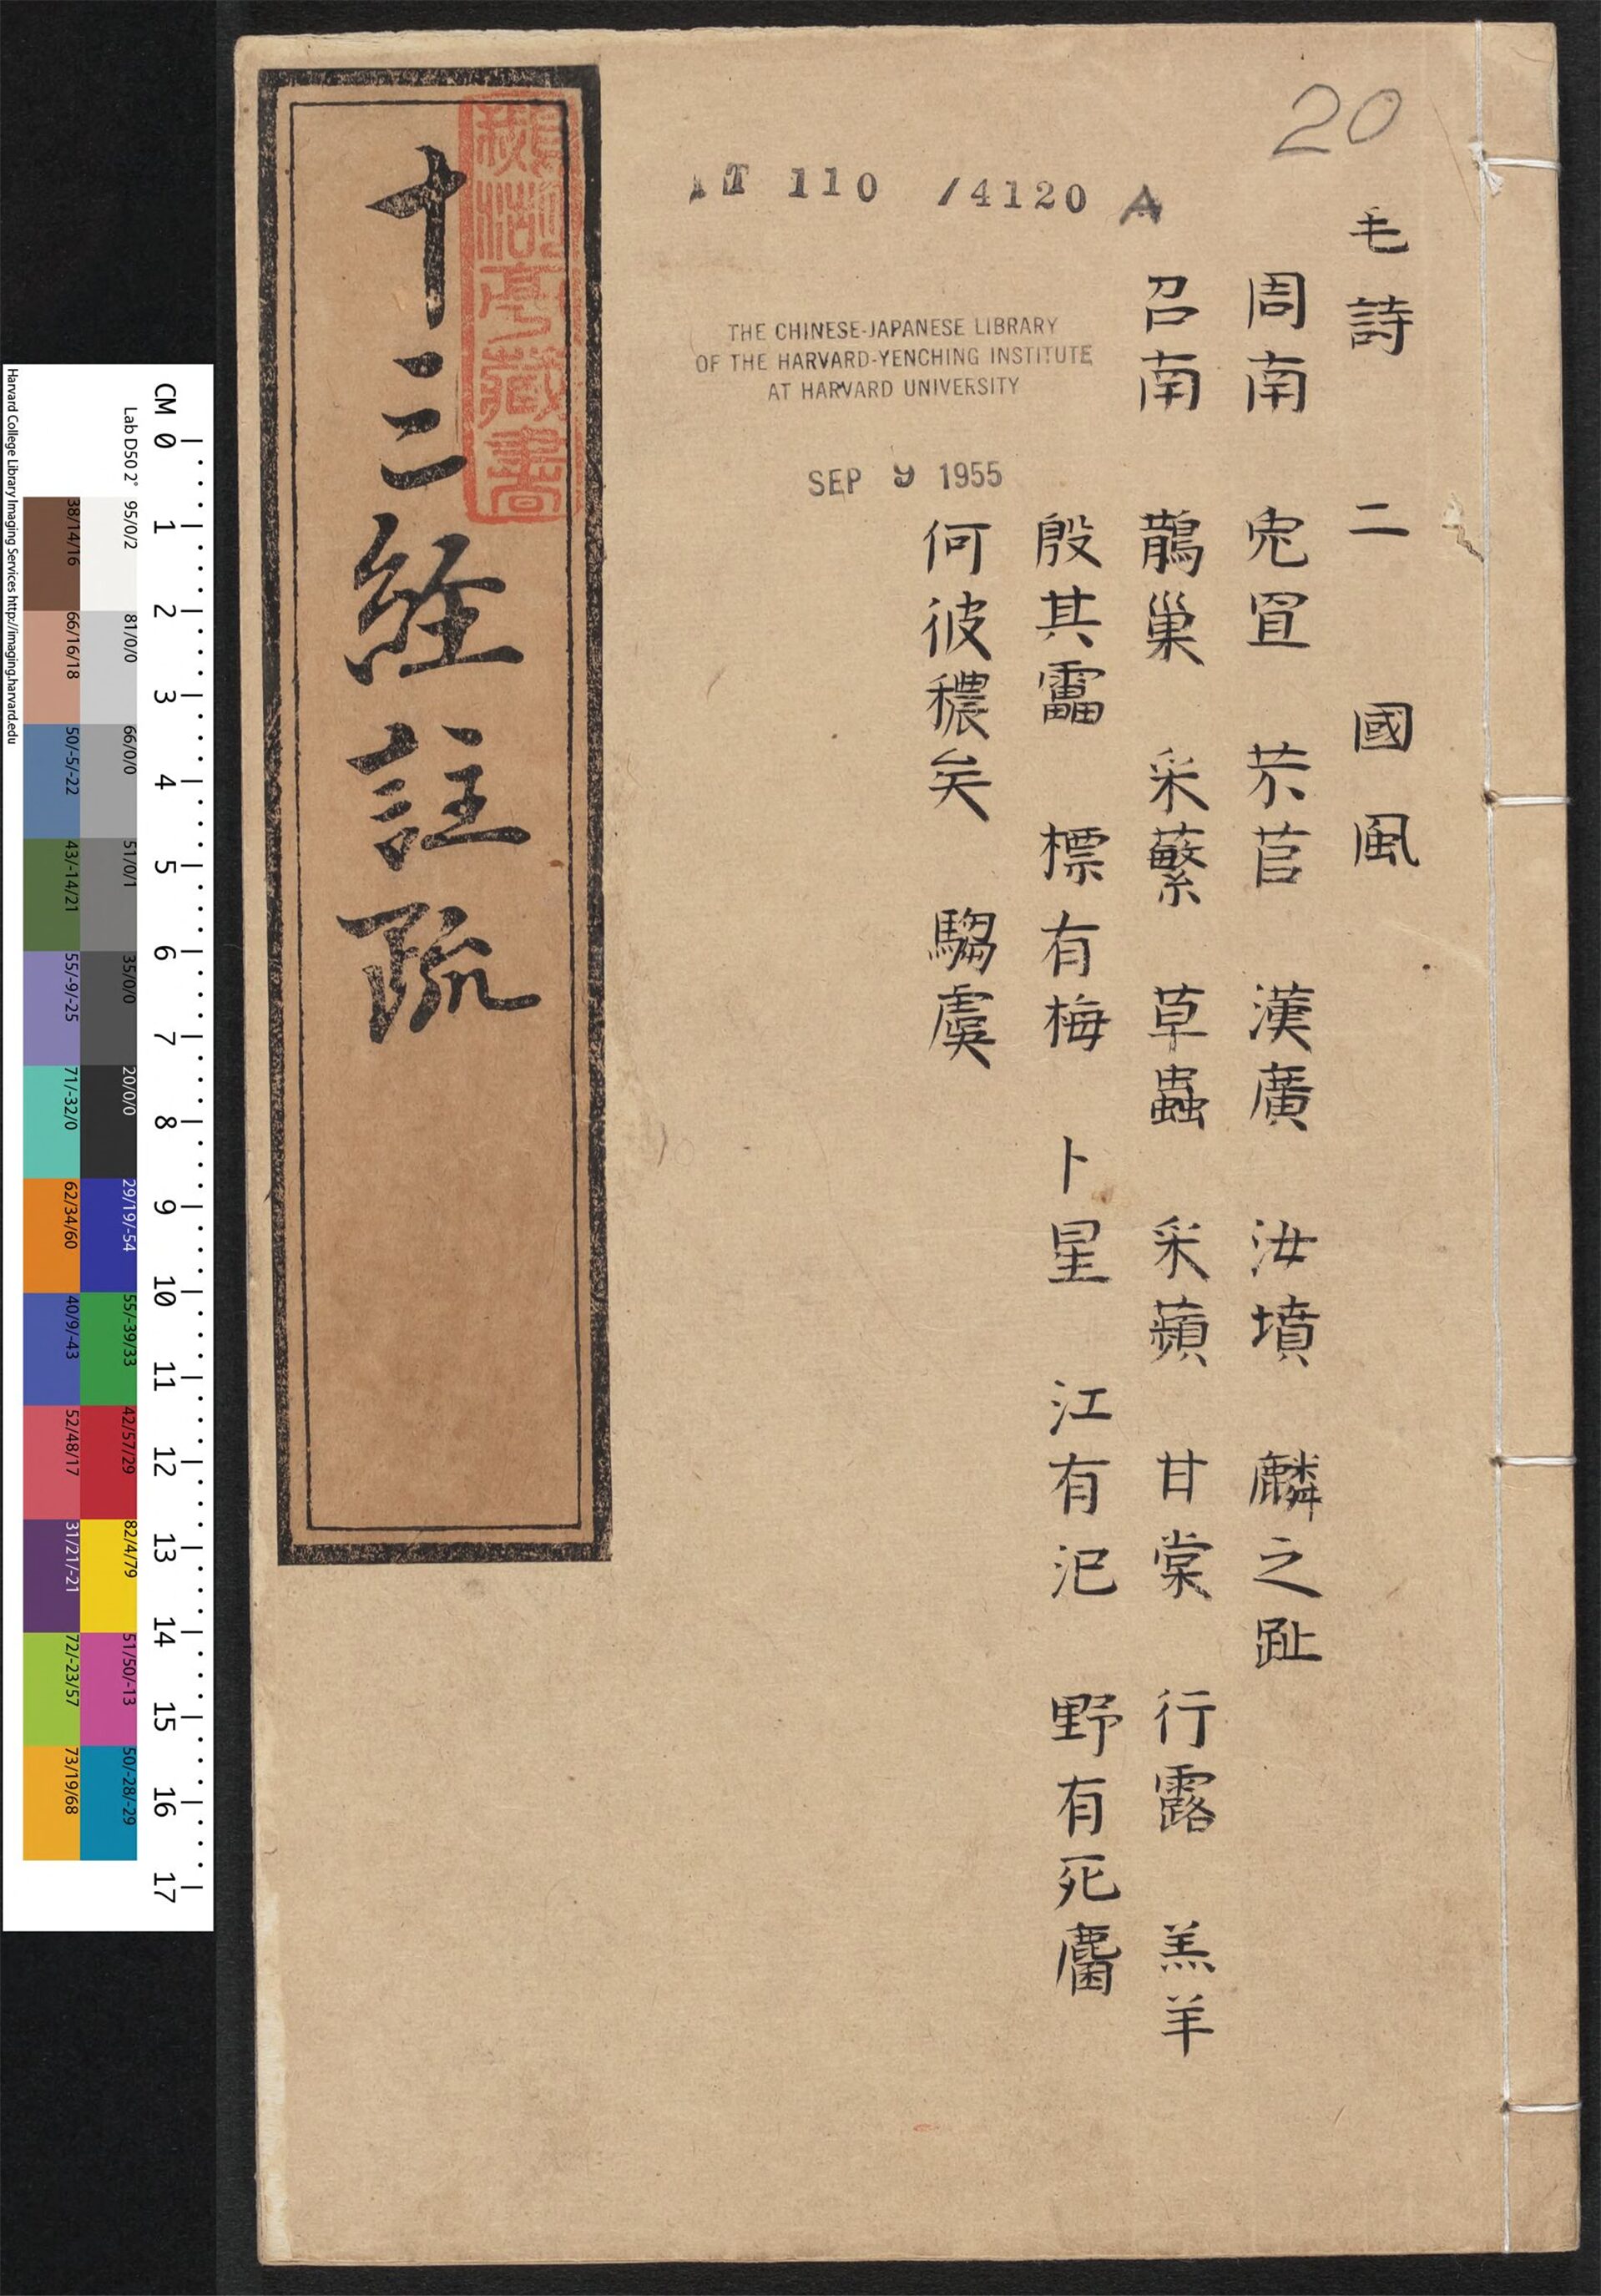 20
毛詩 二 國風
周南 兔罝 芣苢 漢廣 汝墳 麟之趾
召南 鵲巢 采蘩 草蟲 采蘋 甘棠 行露 羔羊
殷其靁 標有梅 卜星 江有汜 野有死麕
何彼穠矣 騶虞
T 110 /4120 A
THE CHINESE-JAPANESE LIBRARY
OF THE HARVARD-YENCHING INSTITUTE
AT HARVARD UNIVERSITY
SEP 9 1955
十三經註疏
亭藏書
CM 0 1 2 3 4 5 6 7 8 9 10 11 12 13 14 15 16 17
Lab D50 2° 95/0/2 81/0/0 66/0/0 51/0/1 35/0/0 20/0/0 29/19/-54 55/-39/33 42/57/29 82/4/79 51/50/-13 50/-28/-29
38/14/16 66/16/18 50/-5/-22 43/-14/21 55/-9/-25 71/-32/0 62/34/60 40/9/-43 52/48/17 31/21/-21 72/-23/57 73/19/68
Harvard College Library Imaging Services http://imaging.harvard.edu